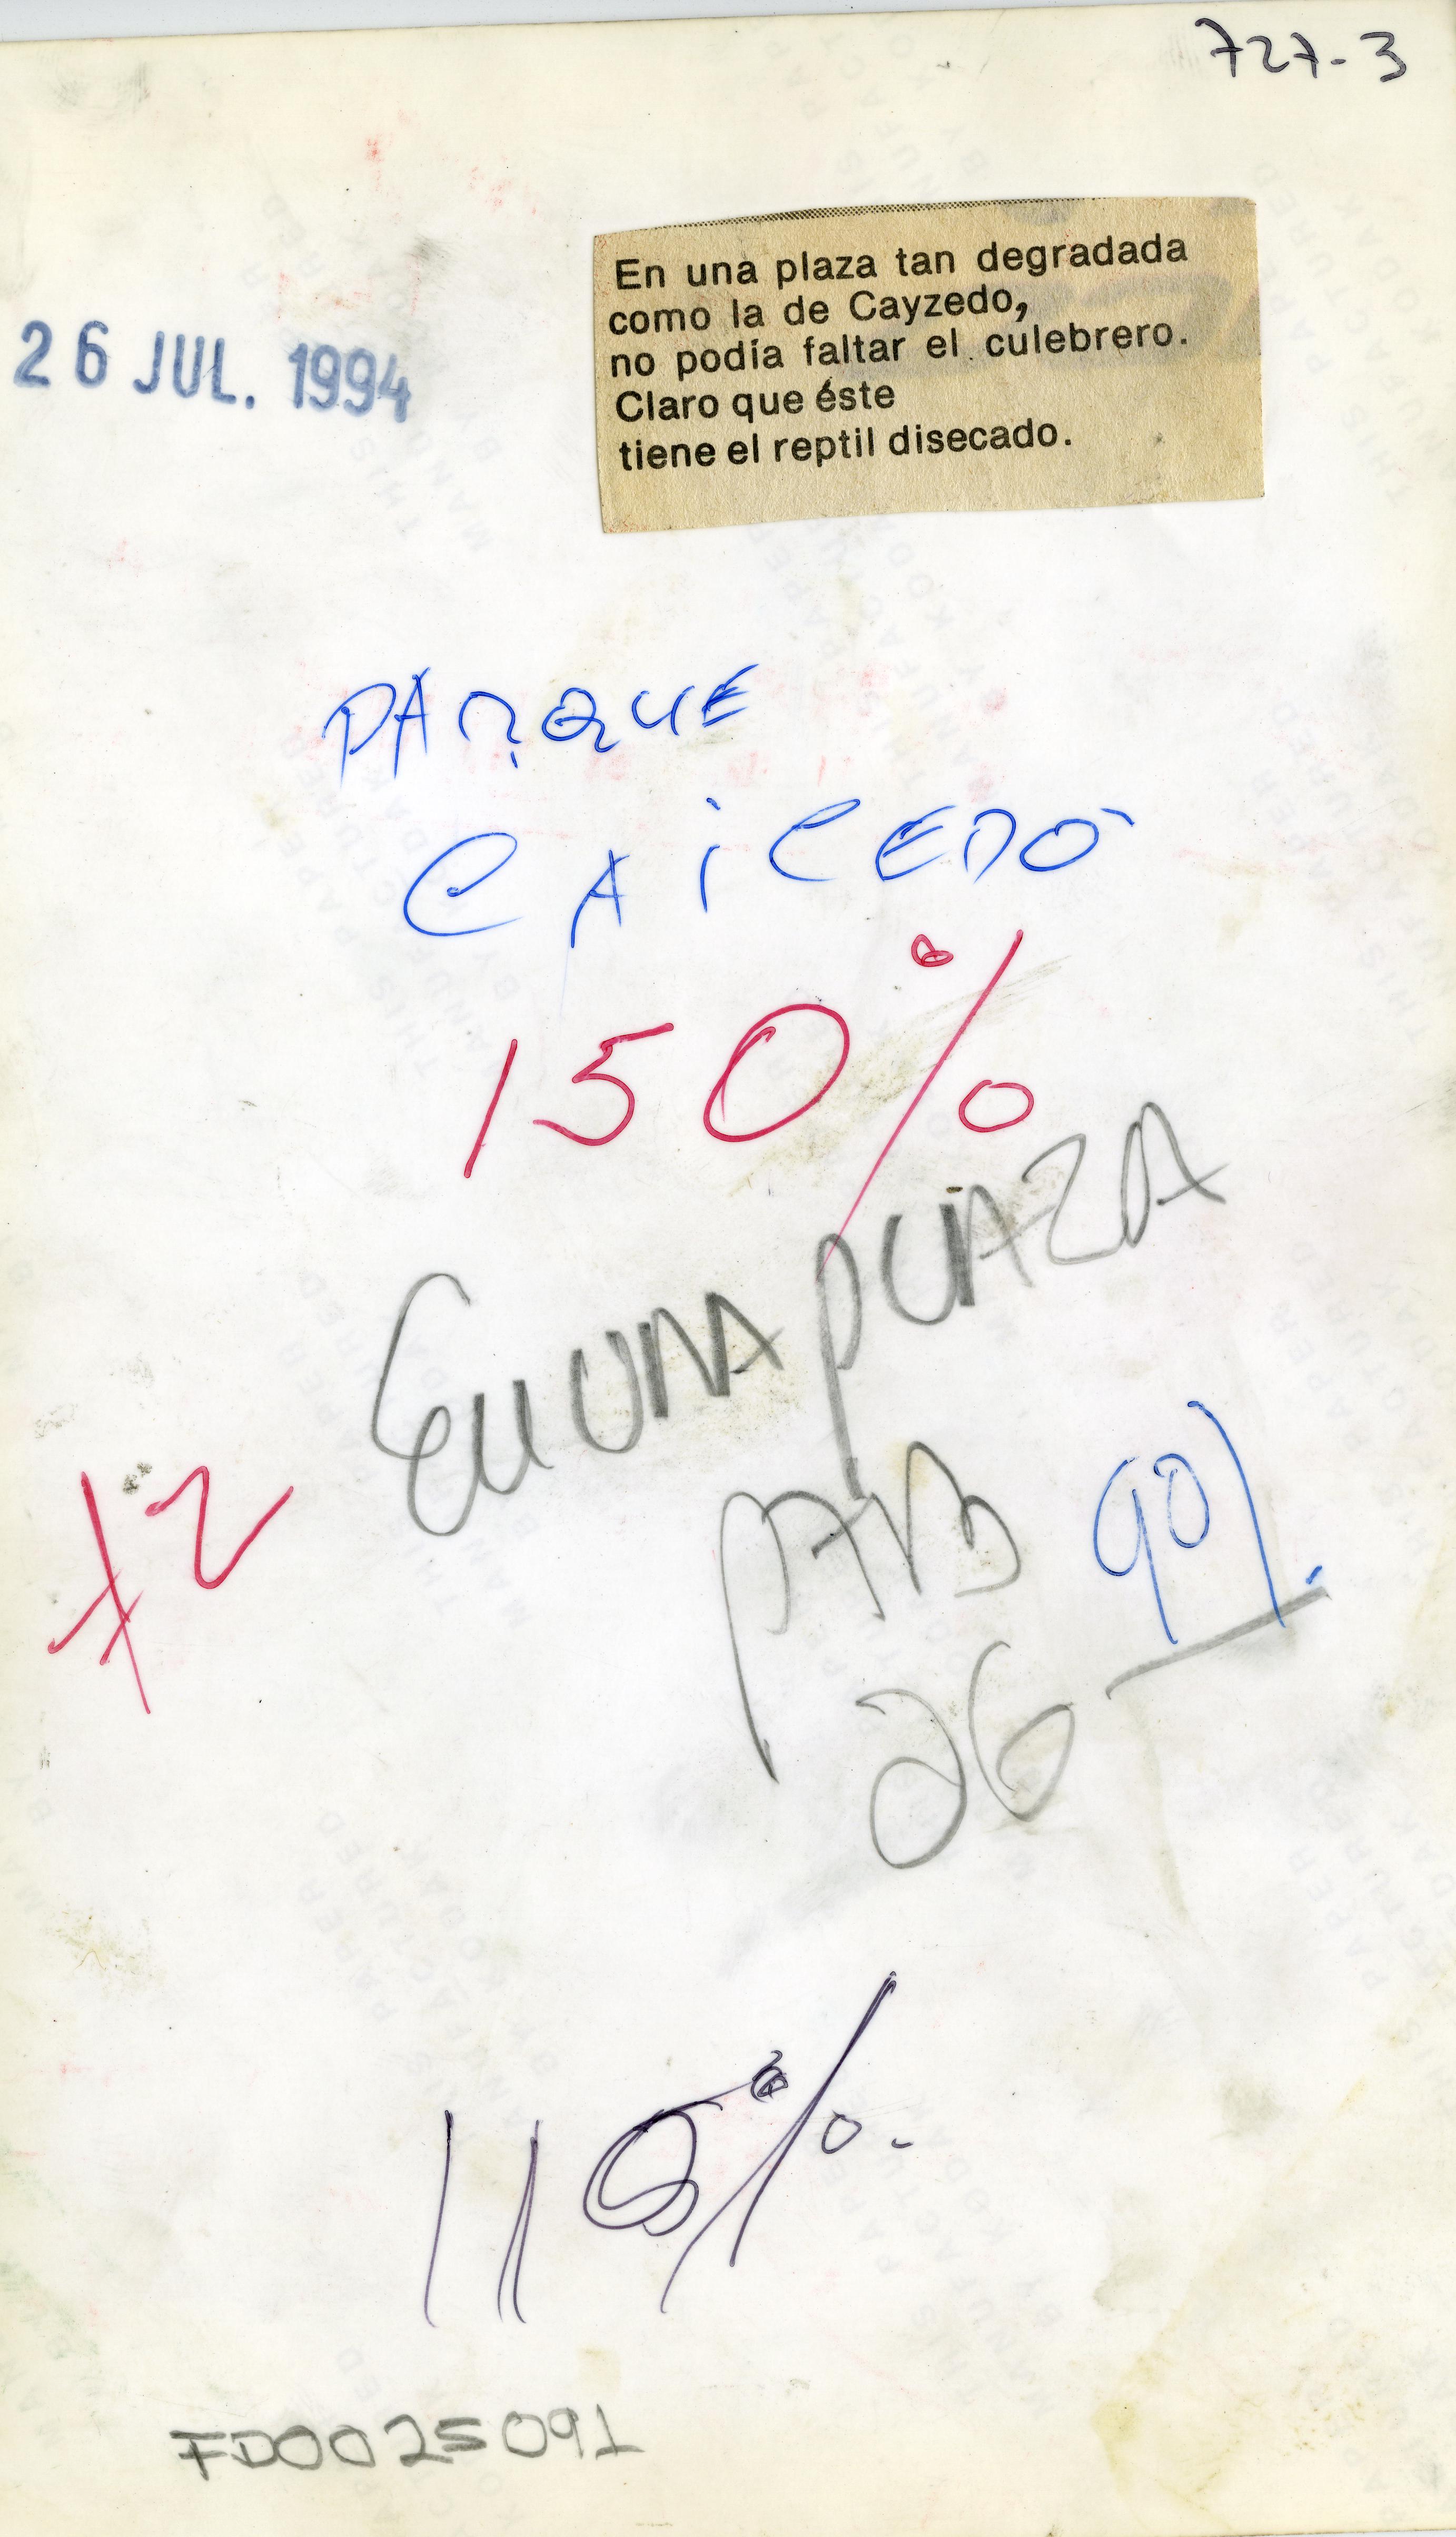 727-3
En una plaza tan degradada
como la de Cayzedo,
no podía faltar el culebrero.
Claro que éste
tiene el reptil disecado.
26 JUL. 1994
PARQUE
CAICEDO
150%
EN UNA PLAZA
90%
26
FD0025091